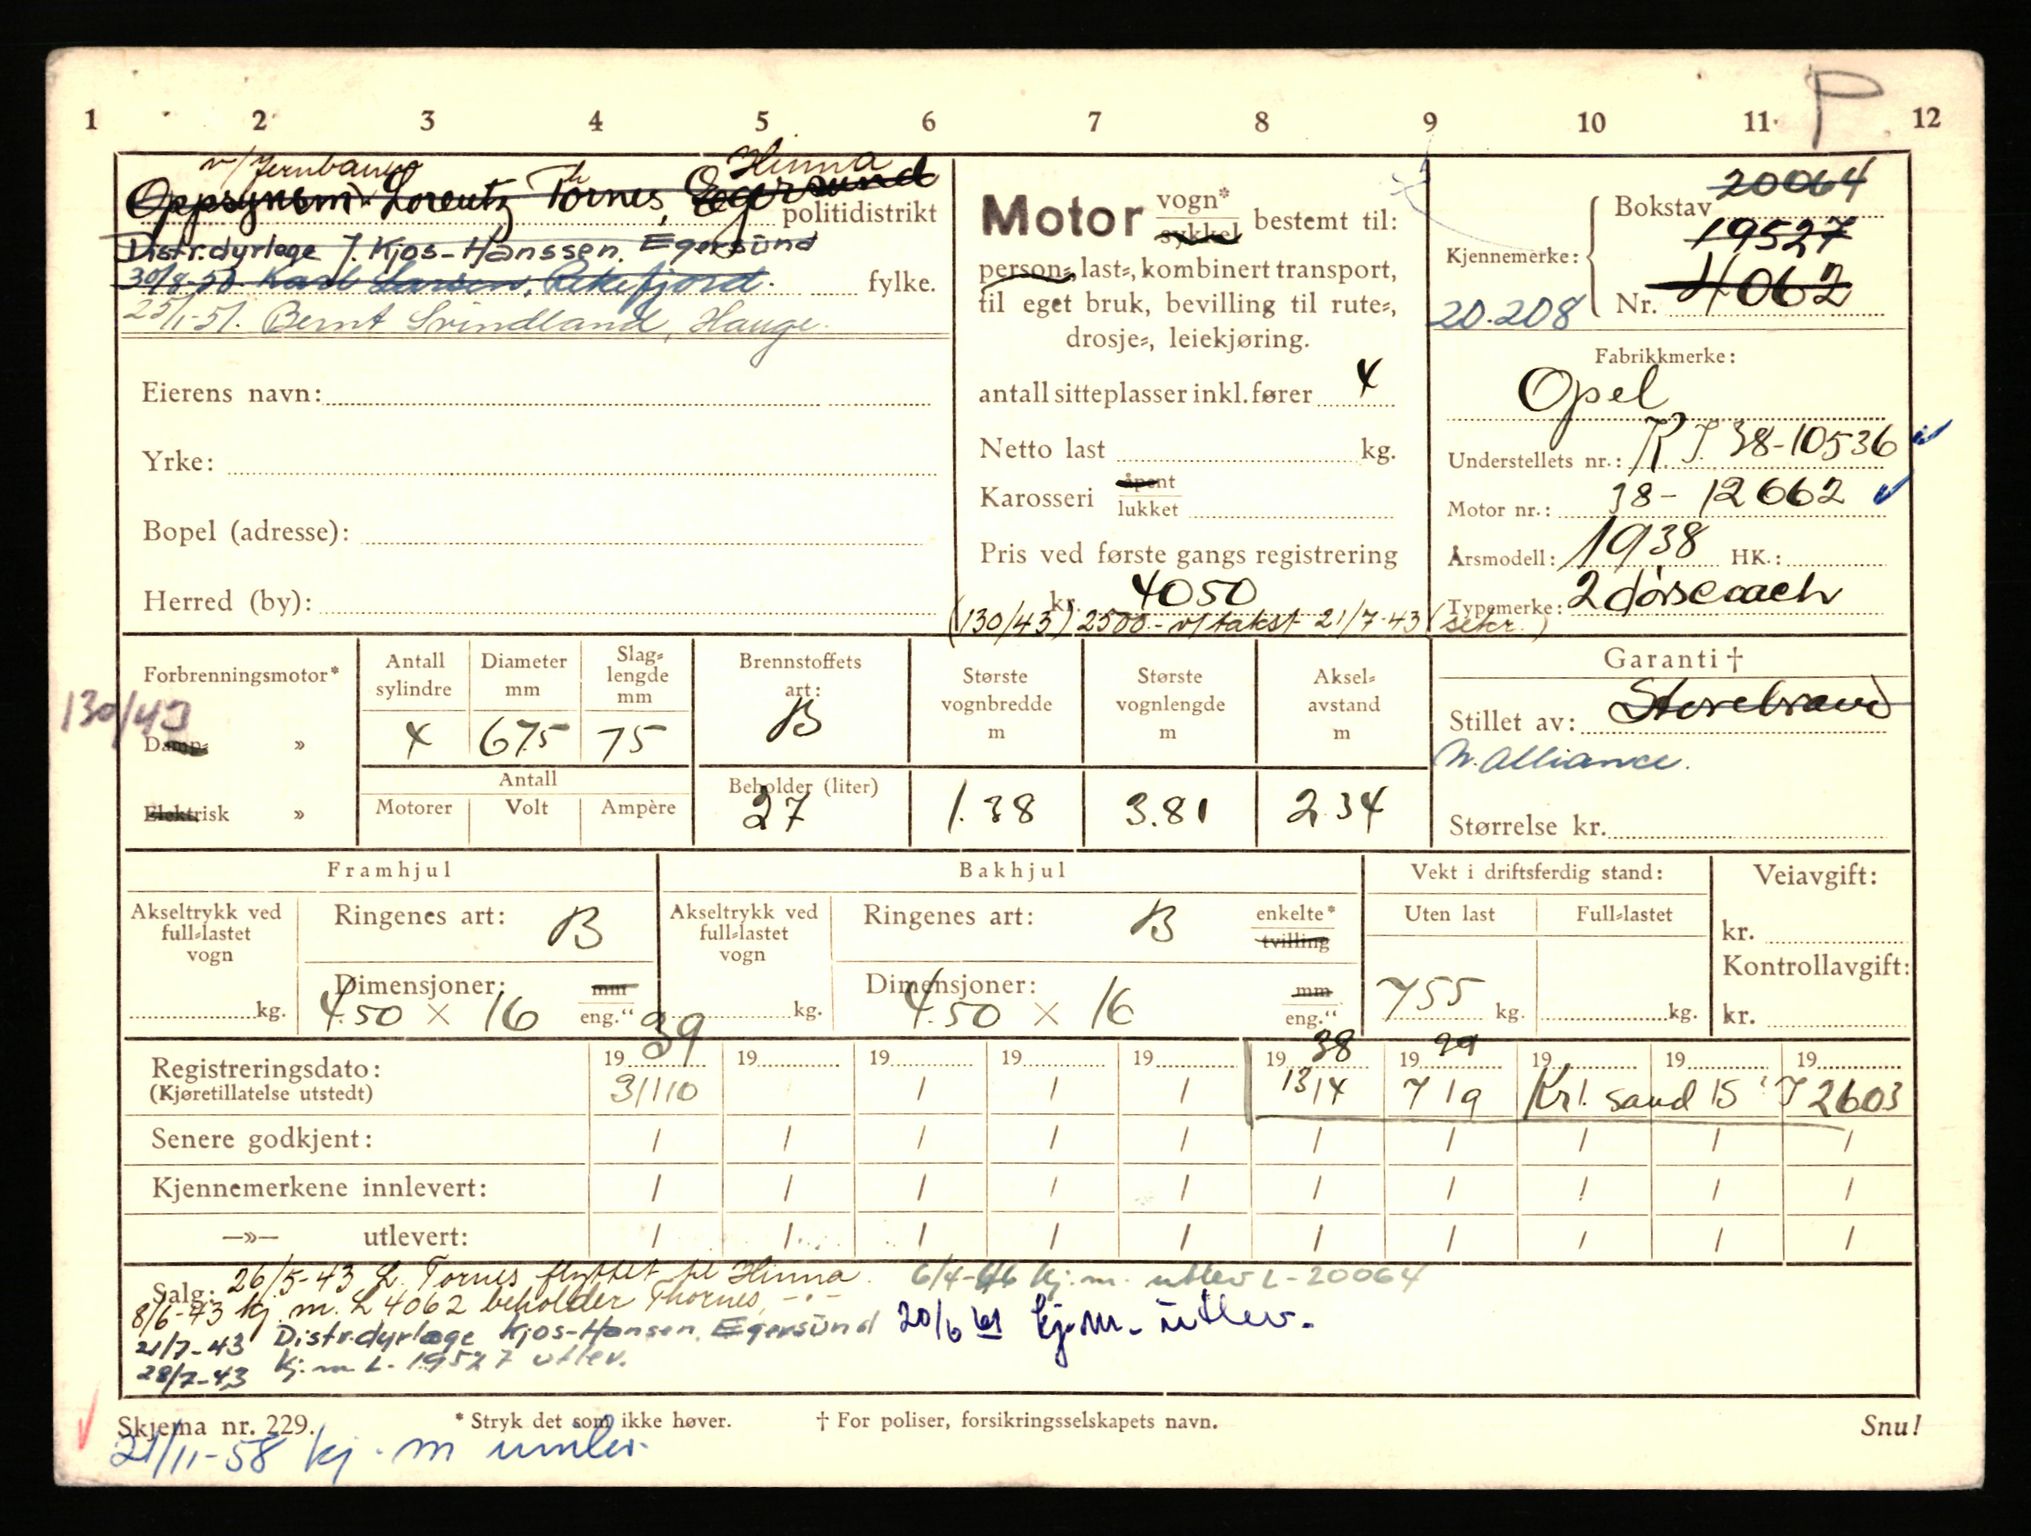 P
1 2 3 4 5 6 7 8 9 10 11 12
v/Jernbanen Hinna
Oppsynsm. Lorentz Th Tornes, Egersund politidistrikt
Distr.dyrlege J. Kjos-Hanssen, Egersund
30/8-50. Karl Larsen, Rekefjord. fylke.
25/1-51. Bernt Svindland, Hauge.
Eierens navn:
Yrke:
Bopel (adresse):
Herred (by):
Motor vogn* sykkel bestemt til:
person-, last-, kombinert transport,
til eget bruk, bevilling til rute-,
drosje-, leiekjøring.
antall sitteplasser inkl. fører 4
Netto last kg.
Karosseri åpent lukket
Pris ved første gangs registrering
kr. 4050
(130/43) 2500.- v/takst 21/7-43 (sekr.)
Kjennemerke: Bokstav 20064
19527
Nr. 4062
20.208
Fabrikkmerke:
Opel
Understellets nr.: K.J. 38-10536
Motor nr.: 38-12662
Årsmodell: 1938 HK.:
Typemerke: 2 dørs coach
Forbrenningsmotor*
130/43
Damp- »
Elektrisk »
Antall sylindre Diameter mm Slag-lengde mm
4 67.5 75
Antall
Motorer Volt Ampère
Brennstoffets art:
B
Beholder (liter)
27
Største vognbredde m
1.38
Største vognlengde m
3.81
Aksel-avstand m
2.34
Garanti †
Stillet av: Storebrand
N. Alliance.
Størrelse kr.
Framhjul
Akseltrykk ved full-lastet vogn
kg.
Ringenes art: B
Dimensjoner: mm
4.50 × 16 eng."
Bakhjul
Akseltrykk ved full-lastet vogn
kg.
Ringenes art: B enkelte* tvilling
Dimensjoner: mm
4.50 × 16 eng."
Vekt i driftsferdig stand:
Uten last Full-lastet
755 kg. kg.
Veiavgift:
kr.
Kontrollavgift:
kr.
Registreringsdato: 19 39 19 19 19 19 19 38 19 39 19 19 19
(Kjøretillatelse utstedt) 31/10 / / / 13/4 7/9 Kr.sand S J 2603
Senere godkjent: / / / / / / / / / /
Kjennemerkene innlevert: / / / / / / / / / /
—»— utlevert: / / / / / / / / / /
Salg: 26/5-43 L. Tornes flyttet til Hinna. 6/4-46 Kj.m. utlev L-20064
8/6-43 kj.m. L 4062 beholder Thornes, -"-
21/7-43 Distr.dyrlege Kjos-Hansen, Egersund 20/6 kj.m. utlev.
28/7-43 kj.m L-19527 utlev.
Skjema nr. 229. * Stryk det som ikke høver. † For poliser, forsikringsselskapets navn. Snu!
21/11-58 kj.m innlev.